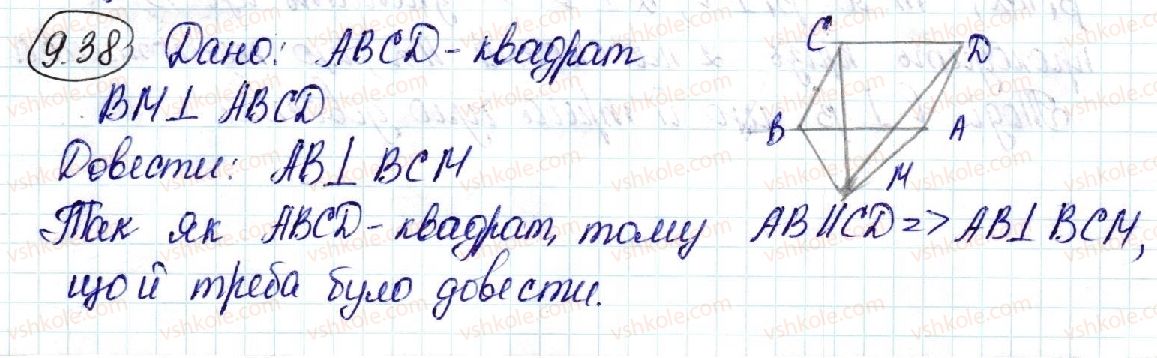 9.38 Дано: ABCD - квадрат
BM ⊥ ABCD
Довести: AB ⊥ BCM
Так як ABCD - квадрат, тому AB || CD => AB ⊥ BCM,
що й треба було довести.
C D
B A
M
vshkole.com